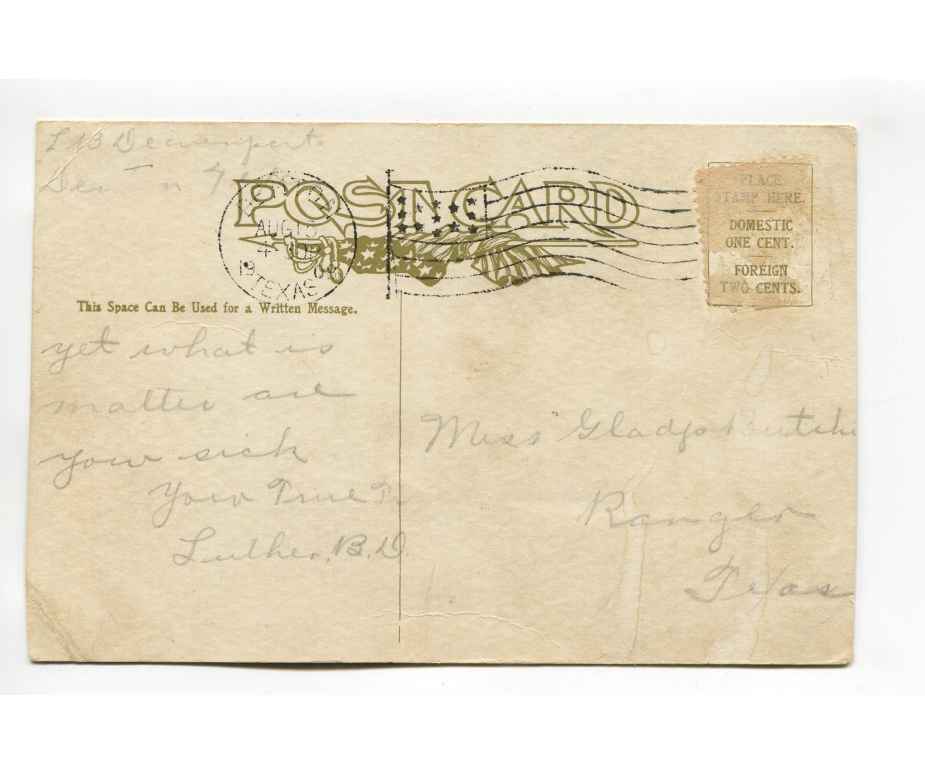 L B Devenport
POST CARD
AUG 15
4
19 09
TEXAS
PLACE
STAMP HERE.
DOMESTIC
ONE CENT.
FOREIGN
TWO CENTS.
This Space Can Be Used for a Written Message.
yet what is
matter are
your sick
Your True
Luther. B. D.
Miss Gladys
Ranger
Texas